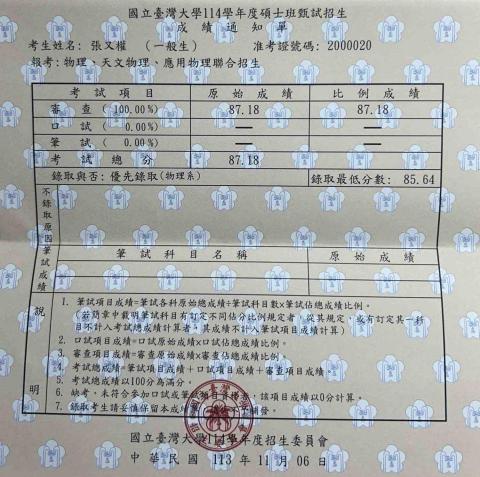 國立臺灣大學114學年度碩士班甄試招生
成績通知單
考生姓名: 張又權 (一般生) 准考證號碼: 2000020
報考: 物理、天文物理、應用物理聯合招生
考試項目 原始成績 比例成績
審 查 (100.00%) 87.18 87.18
口 試 ( 0.00%) — —
筆 試 ( 0.00%) — —
考試總分 87.18
錄取與否: 優先錄取(物理系) 錄取最低分數: 85.64
不錄取原因
筆試成績
筆試科目名稱 原始成績
說明
1. 筆試項目成績=筆試各科原始總成績÷筆試科目數×筆試佔總成績比例。
(若簡章中載明筆試科目有訂定不同佔分比例規定者,從其規定,或有訂定其一科
目不計入考試總成績計算者,其成績不計入筆試項目成績計算)
2. 口試項目成績=口試原始成績×口試佔總成績比例。
3. 審查項目成績=審查原始成績×審查佔總成績比例。
4. 考試總成績=筆試項目成績+口試項目成績+審查項目成績。
5. 考試總成績以100分為滿分。
6. 缺考、未符合參加口試或筆試項目資格者,該項目成績以0分計算。
7. 錄取考生請妥慎保留本成
國立臺灣大學114學年度招生委員會
中華民國 113 年 11 月 06 日